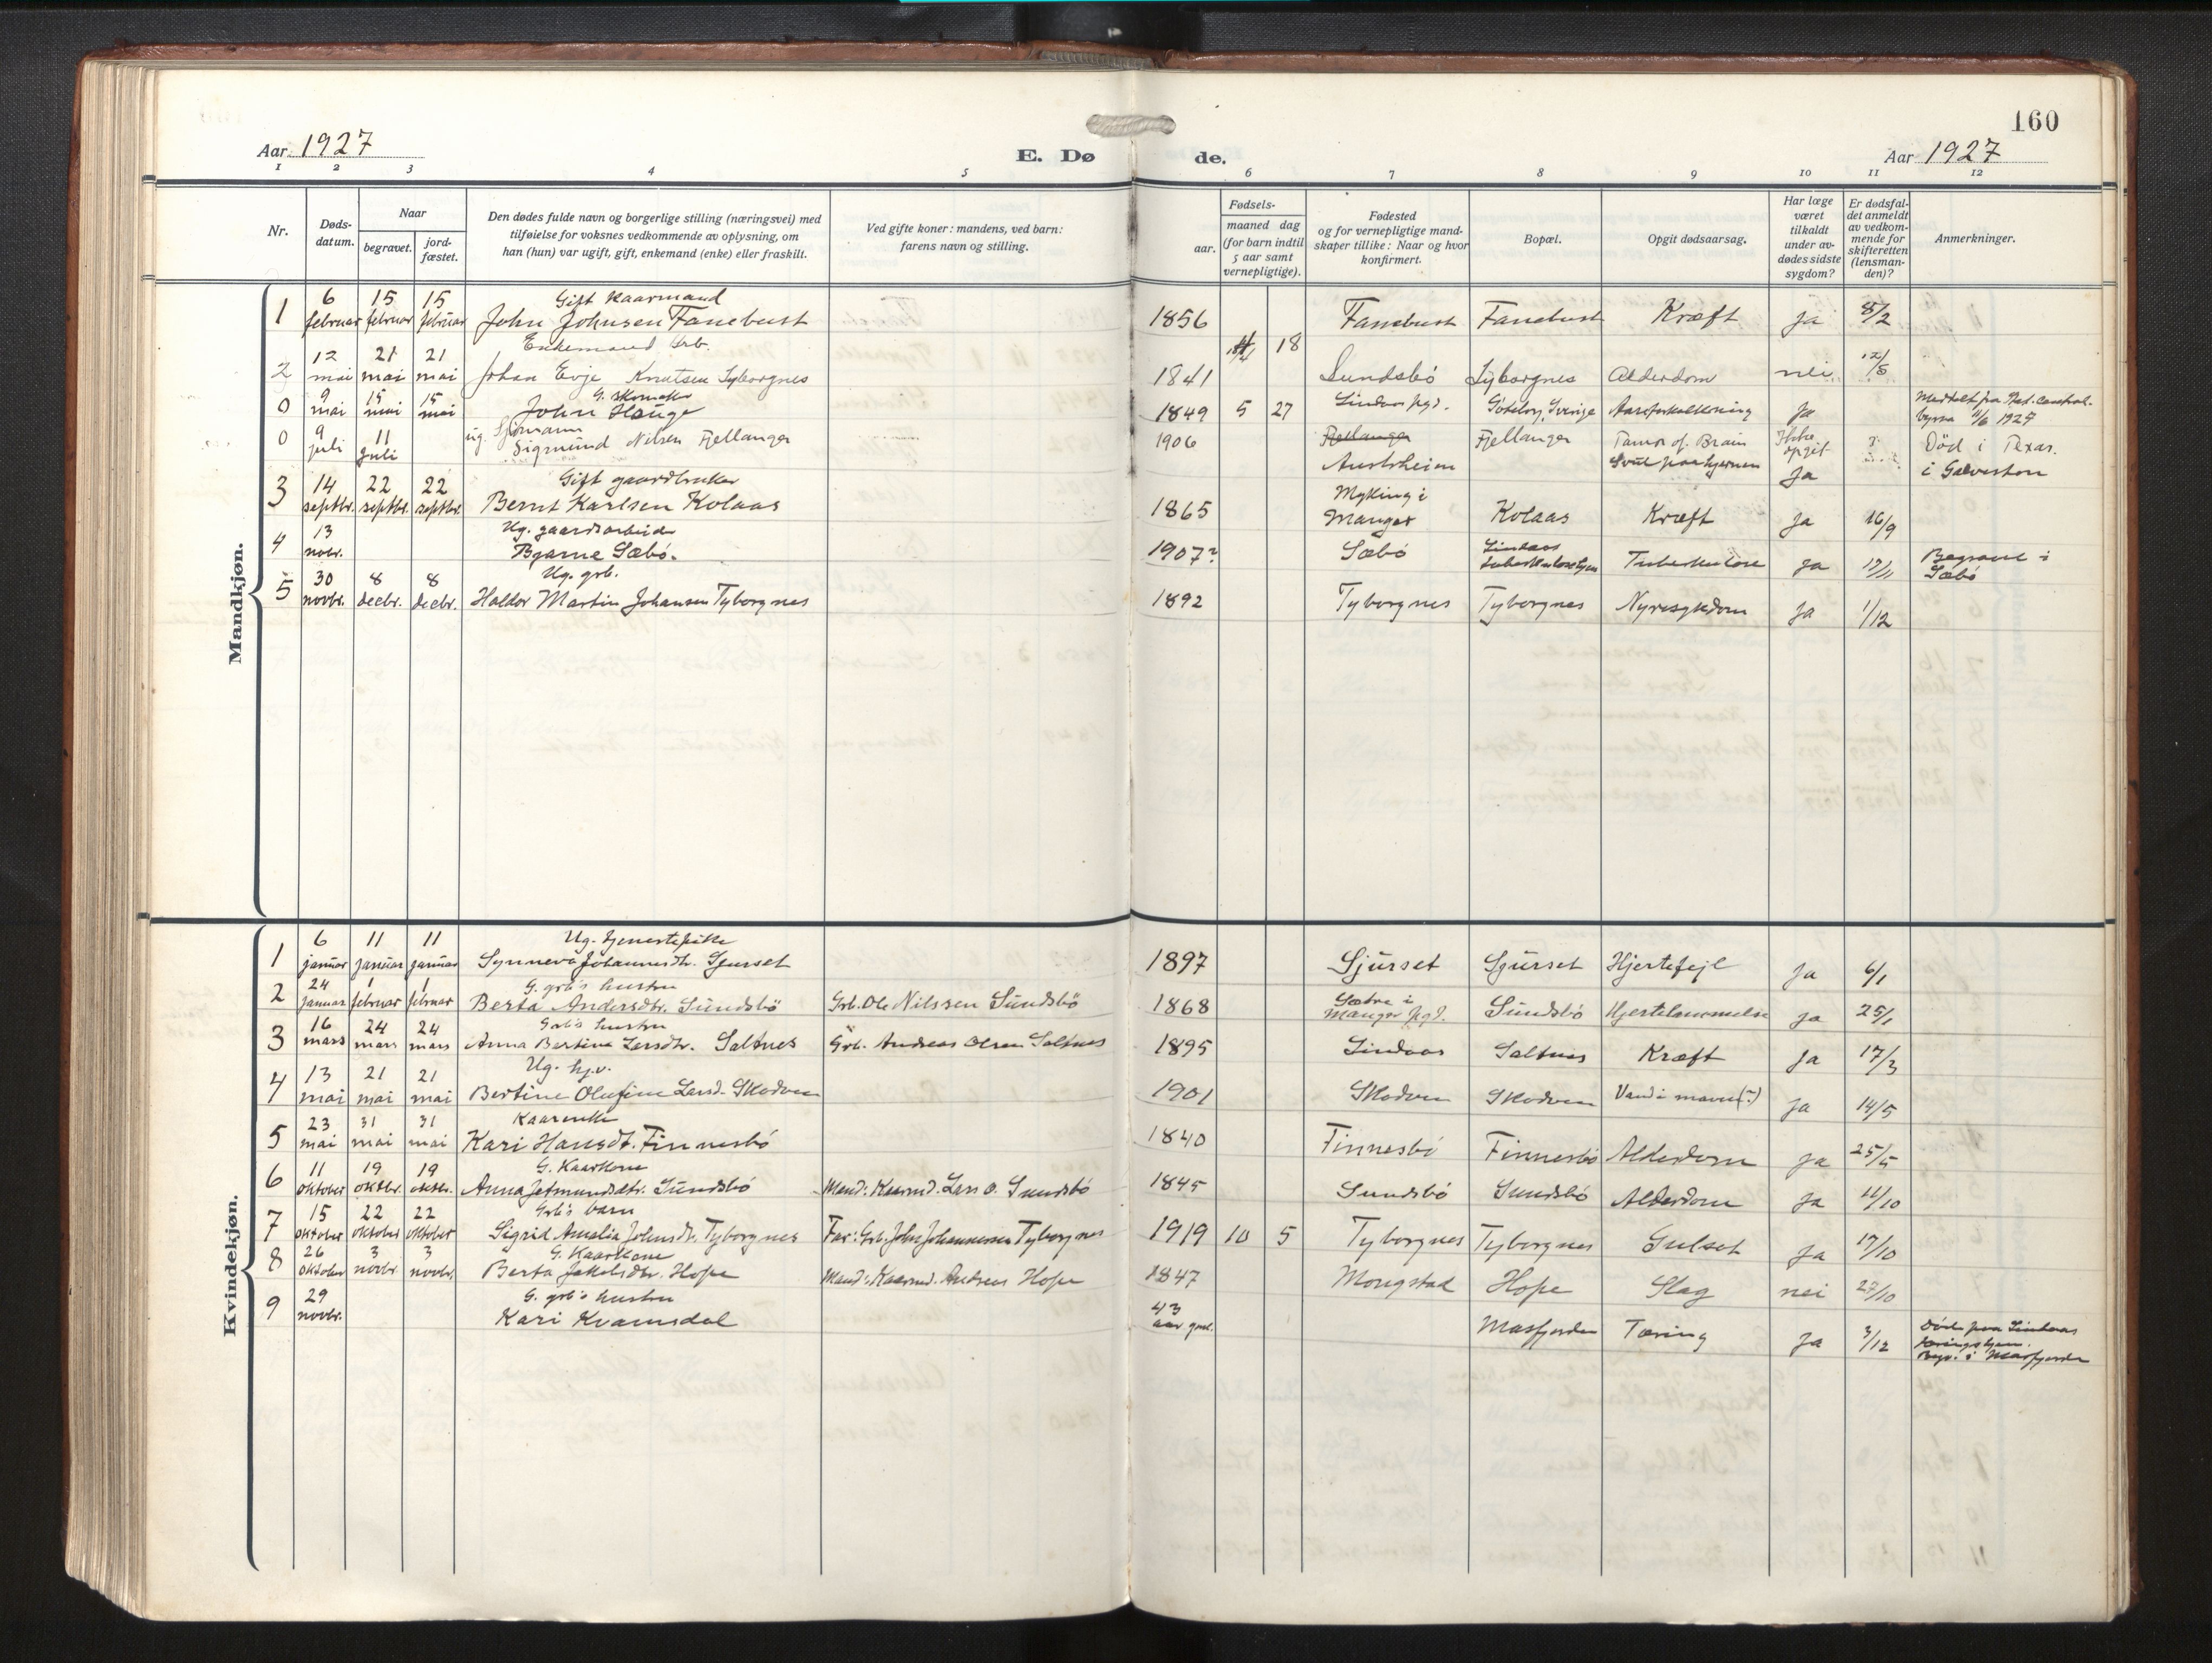 160
Aar 1927
E. Døde.
Aar 1927
1 2 3 4 5 6 7 8 9 10 11 12
Nr.
Døds-datum.
Naar
begravet.
jord-fæstet.
Den dødes fulde navn og borgerlige stilling (næringsvei) med
tilføielse for voksnes vedkommende av oplysning, om
han (hun) var ugift, gift, enkemand (enke) eller fraskilt.
Ved gifte koner: mandens, ved barn:
farens navn og stilling.
Fødsels-
aar.
maaned dag
(for barn indtil
5 aar samt
vernepligtige).
Fødested
og for vernepligtige mand-
skaper tillike: Naar og hvor
konfirmert.
Bopæl.
Opgit dødsaarsag.
Har læge
været
tilkaldt
under av-
dødes sidste
sygdom?
Er dødsfal-
det anmeldt
av vedkom-
mende for
skifteretten
(lensman-
den)?
Anmerkninger.
Mandkjøn.
Gift Kaarmand
1 6 februar 15 februar 15 februar John Johnsen Fanebust 1856 Fanebust Fanebust Kræft ja 8/2
Enkemand Grb.
2 12 mai 21 mai 21 mai Johan Evje Knutsen Tyborgnes 1841 18 Sundsbö Tyborgnes Alderdom nei 12/5
G. skomaker
0 9 mai 15 mai 15 mai John Hauge 1849 5 27 Lindaas pgd. Göteborg, Sverige Aareforkalkning ja Meddelt fra Stat. Central-
byraa 11/6 1927
ug. Sjömann
0 9 juli 11 juli Sigmund Nilsen Fjellanger 1906 Fjellanger Austrheim Fjellanger Tumor of Brain Ikke opgit ? Död i Texas.
Svul paa hjernen Ja i Galveston
Gift gaardbruker
3 14 septbr. 22 septbr. 22 septbr. Bernt Karlsen Kolaas 1865 Myking i Manger Kolaas Kræft ja 16/9
Ug. gaardsarbeider
4 13 nobr. Bjarne Sæbö. 1907? Sæbö Lindaas Tuberkulosehjem Tuberkulose ja 17/11 Begravet i Sæbö
Ug. grb.
5 30 novbr. 8 decbr. 8 decbr. Haldor Martin Johansen Tyborgnes 1892 Tyborgnes Tyborgnes Nyresygdom ja 1/12
Kvindekjøn.
Ug. tjenestepike
1 6 januar 11 januar 11 januar Synneva Johannesdtr. Sjurset 1897 Sjurset Sjurset Hjertefejl ja 6/1
G. grb's hustru
2 24 januar 1 februar 1 februar Berta Andersdtr. Sundsbö Grb. Ole Nilssen Sundsbö 1868 Sætre i Manger pgd. Sundsbö Hjertelammelse ja 25/1
Grb's hustru
3 16 mars 24 mars 24 mars Anna Bertine Larsdtr. Saltnes Grb. Andreas Olsen Saltnes 1895 Lindaas Saltnes Kræft ja 17/3
Ug. hj.v.
4 13 mai 21 mai 21 mai Bertine Olufine Larsd. Skodven 1901 Skodven Skodven Vand i maven (?) ja 14/5
Kaarenke
5 23 mai 31 mai 31 mai Kari Hansdt. Finnesbö 1840 Finnesbö Finnesbö Alderdom ja 25/5
G. Kaarkone
6 11 oktober 19 oktbr. 19 oktbr. Anna Jetmundsdtr. Sundsbö Mand: Kaarmd. Lars O. Sundsbö 1845 Sundsbö Sundsbö Alderdom ja 11/10
Grb's barn
7 15 oktober 22 oktober 22 oktober Sigrid Amalia Johnsdt. Tyborgnes Far: Grb. John Johannessen Tyborgnes 1919 10 5 Tyborgnes Tyborgnes Gulsot ja 17/10
G. Kaarkone
8 26 oktober 3 novbr. 3 novbr. Berta Jakobsdtr. Hope Mand: Kaarmd. Andreas Hope 1847 Mongstad Hope Slag nei 27/10
G. grb's hustru
9 29 novbr. Kari Kvamsdal 43 aar gml. Masfjorden Tæring ja 3/12 Död paa Lindaas
tæringshjem.
Begr. i Masfjorden